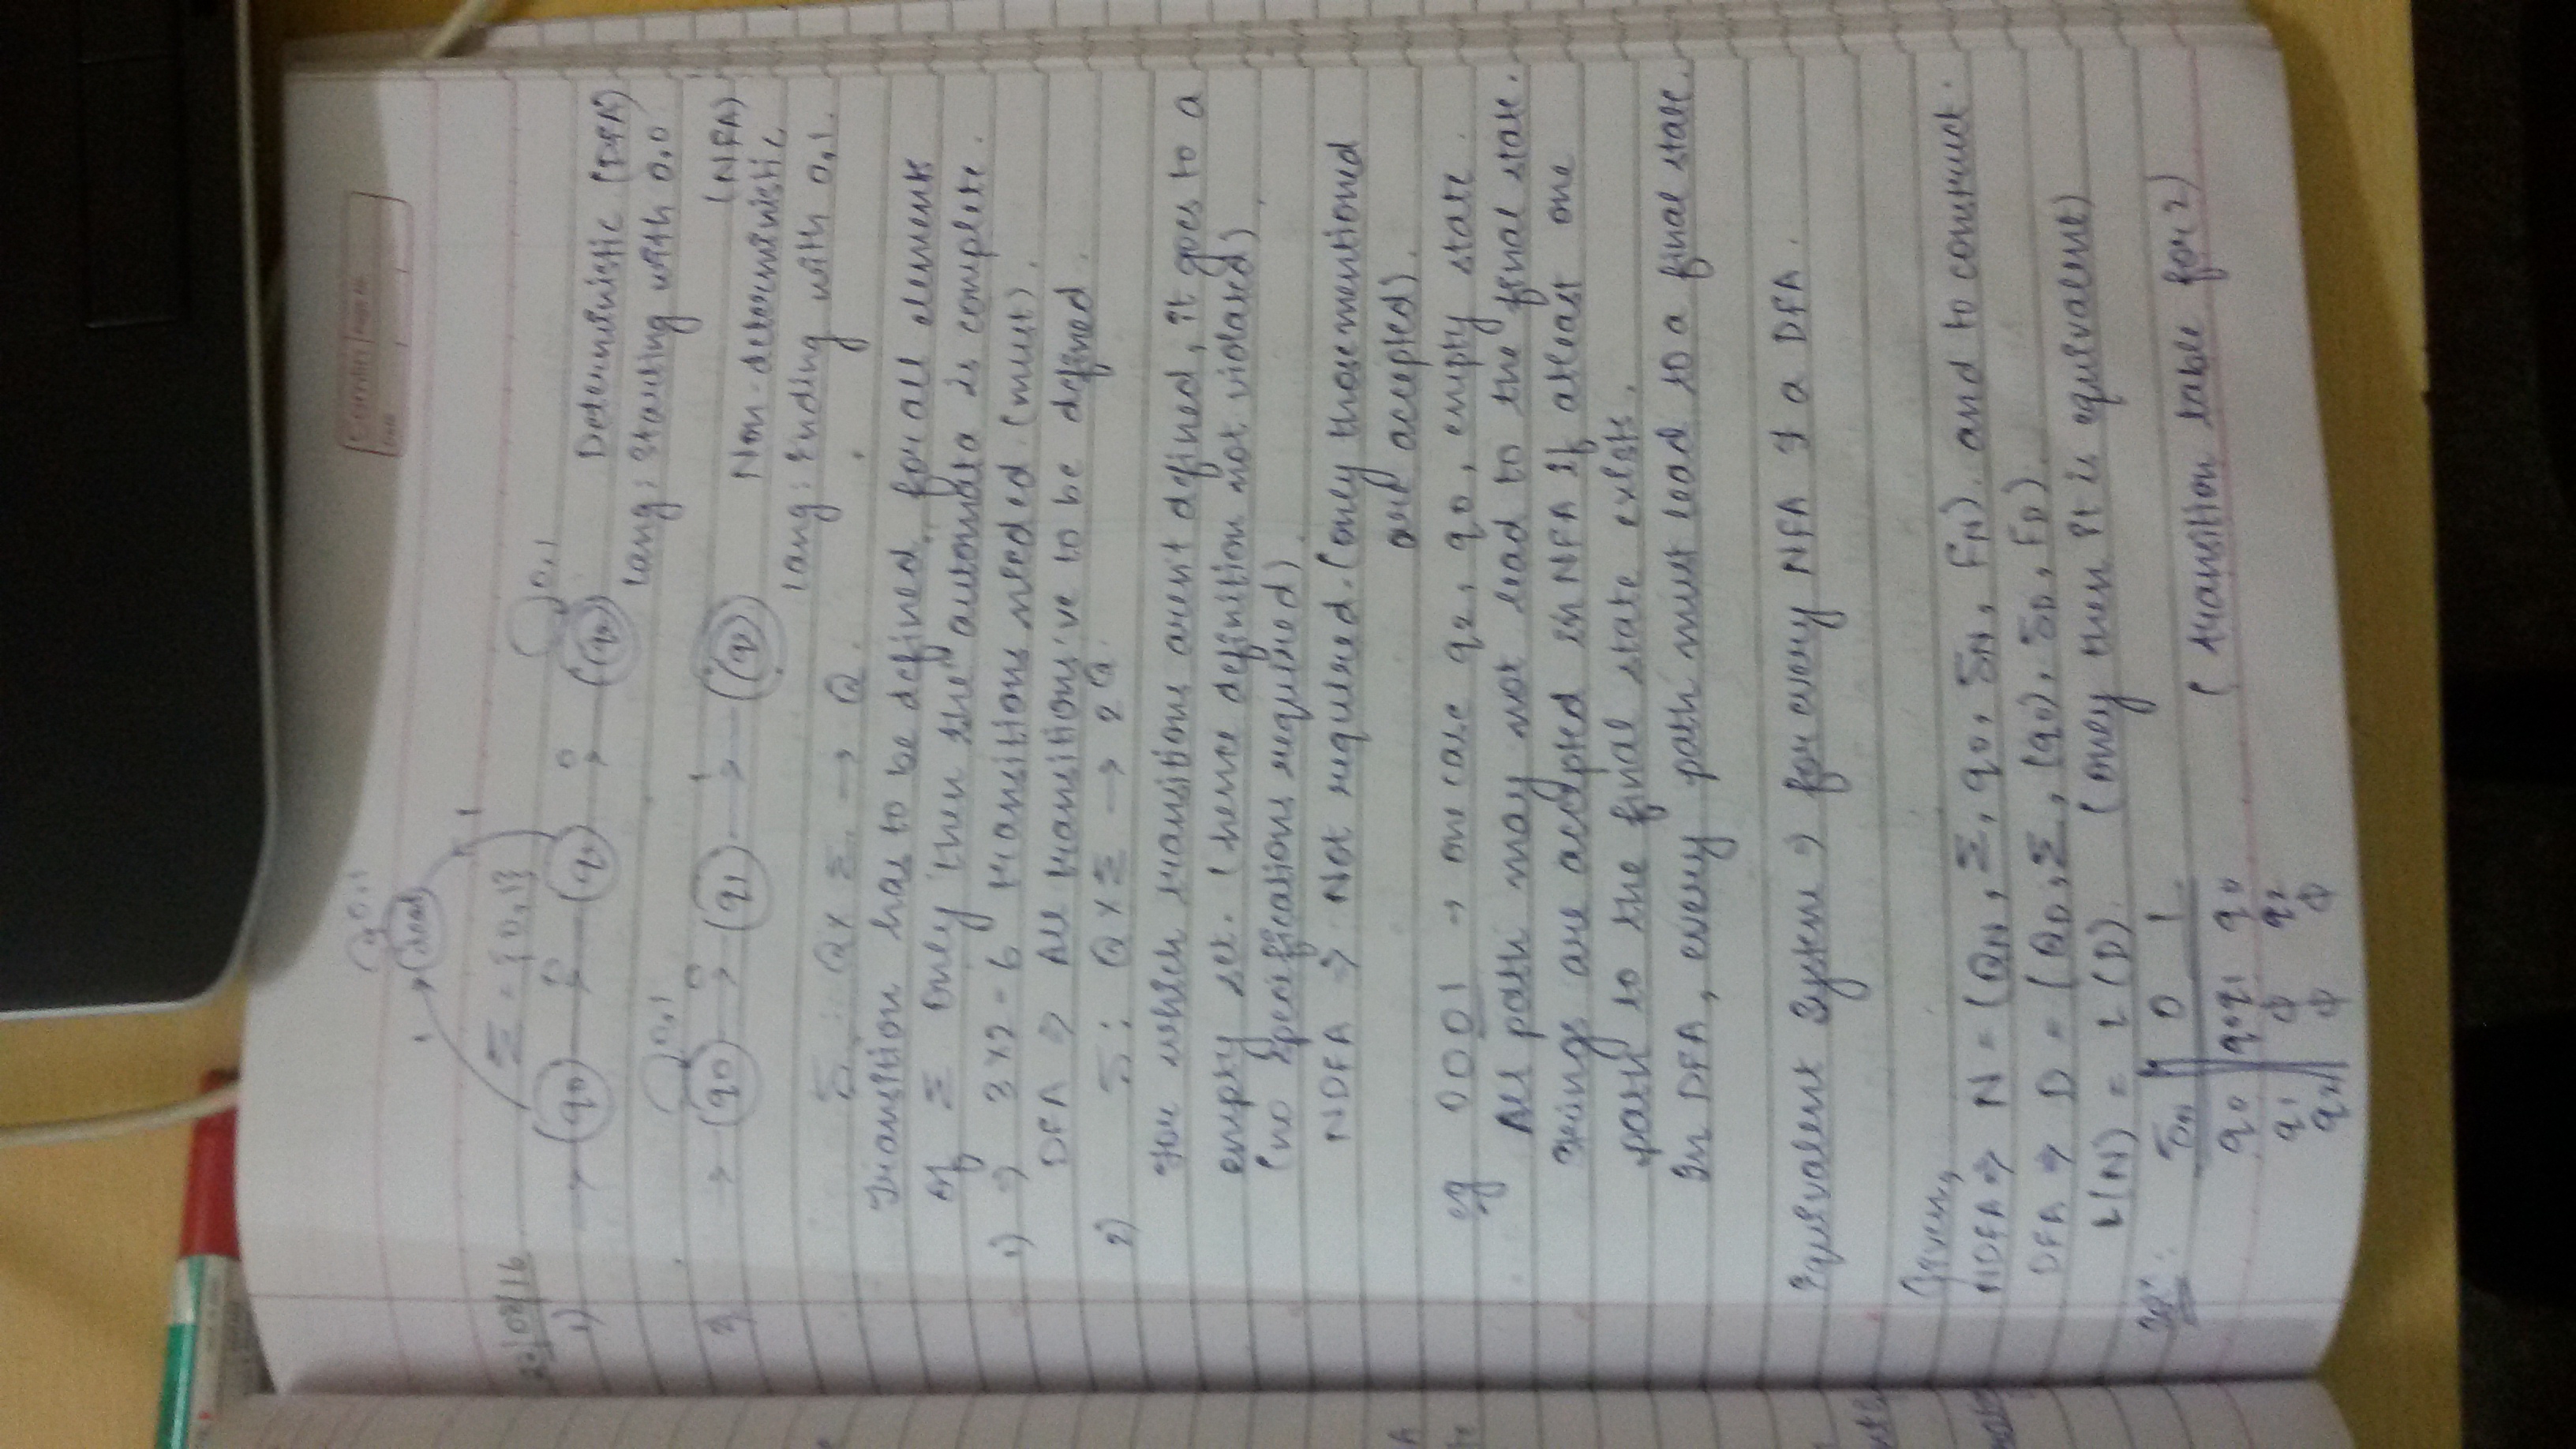 0,1
dead
1
1
Σ = {0,1}
/08/16
1) → q0 0 → q1 0 → q2 0,1 Deterministic (DFA)
lang: Starting with 0,0
0,1
→ q0 0 → q1 1 → q2 (NFA)
Non-deterministic
lang: Ending with 0,1.
δ: Q × Σ → Q.
Transition has to be defined for all elements
of Σ Only then the automata is complete.
1) ⇒ 3×2=6 transitions needed (must).
DFA ⇒ All transitions've to be defined.
2) δ: Q × Σ → 2^Q.
For which transitions aren't defined, it goes to a
empty set. (hence definition not violated)
(no specifications required).
NDFA ⇒ Not required. (only those mentioned
are accepted).
eg 0001 → one case q2, q0, empty state.
All path may not lead to the final state.
Strings are accepted in NFA if atleast one
path to the final state exists.
In DFA, every path must lead to a final state.
Equivalent System ⇒ for every NFA ∃ a DFA.
Given,
NDFA ⇒ N = (QN, Σ, q0, δN, FN). and to construct.
DFA ⇒ D = (QD, Σ, (q0), δD, FD).
L(N) = L(D). (only then it is equivalent)
δN 0 1
(transition table for 2)
q0 q0q1 q0
q1 ϕ q2
q2 ϕ ϕ